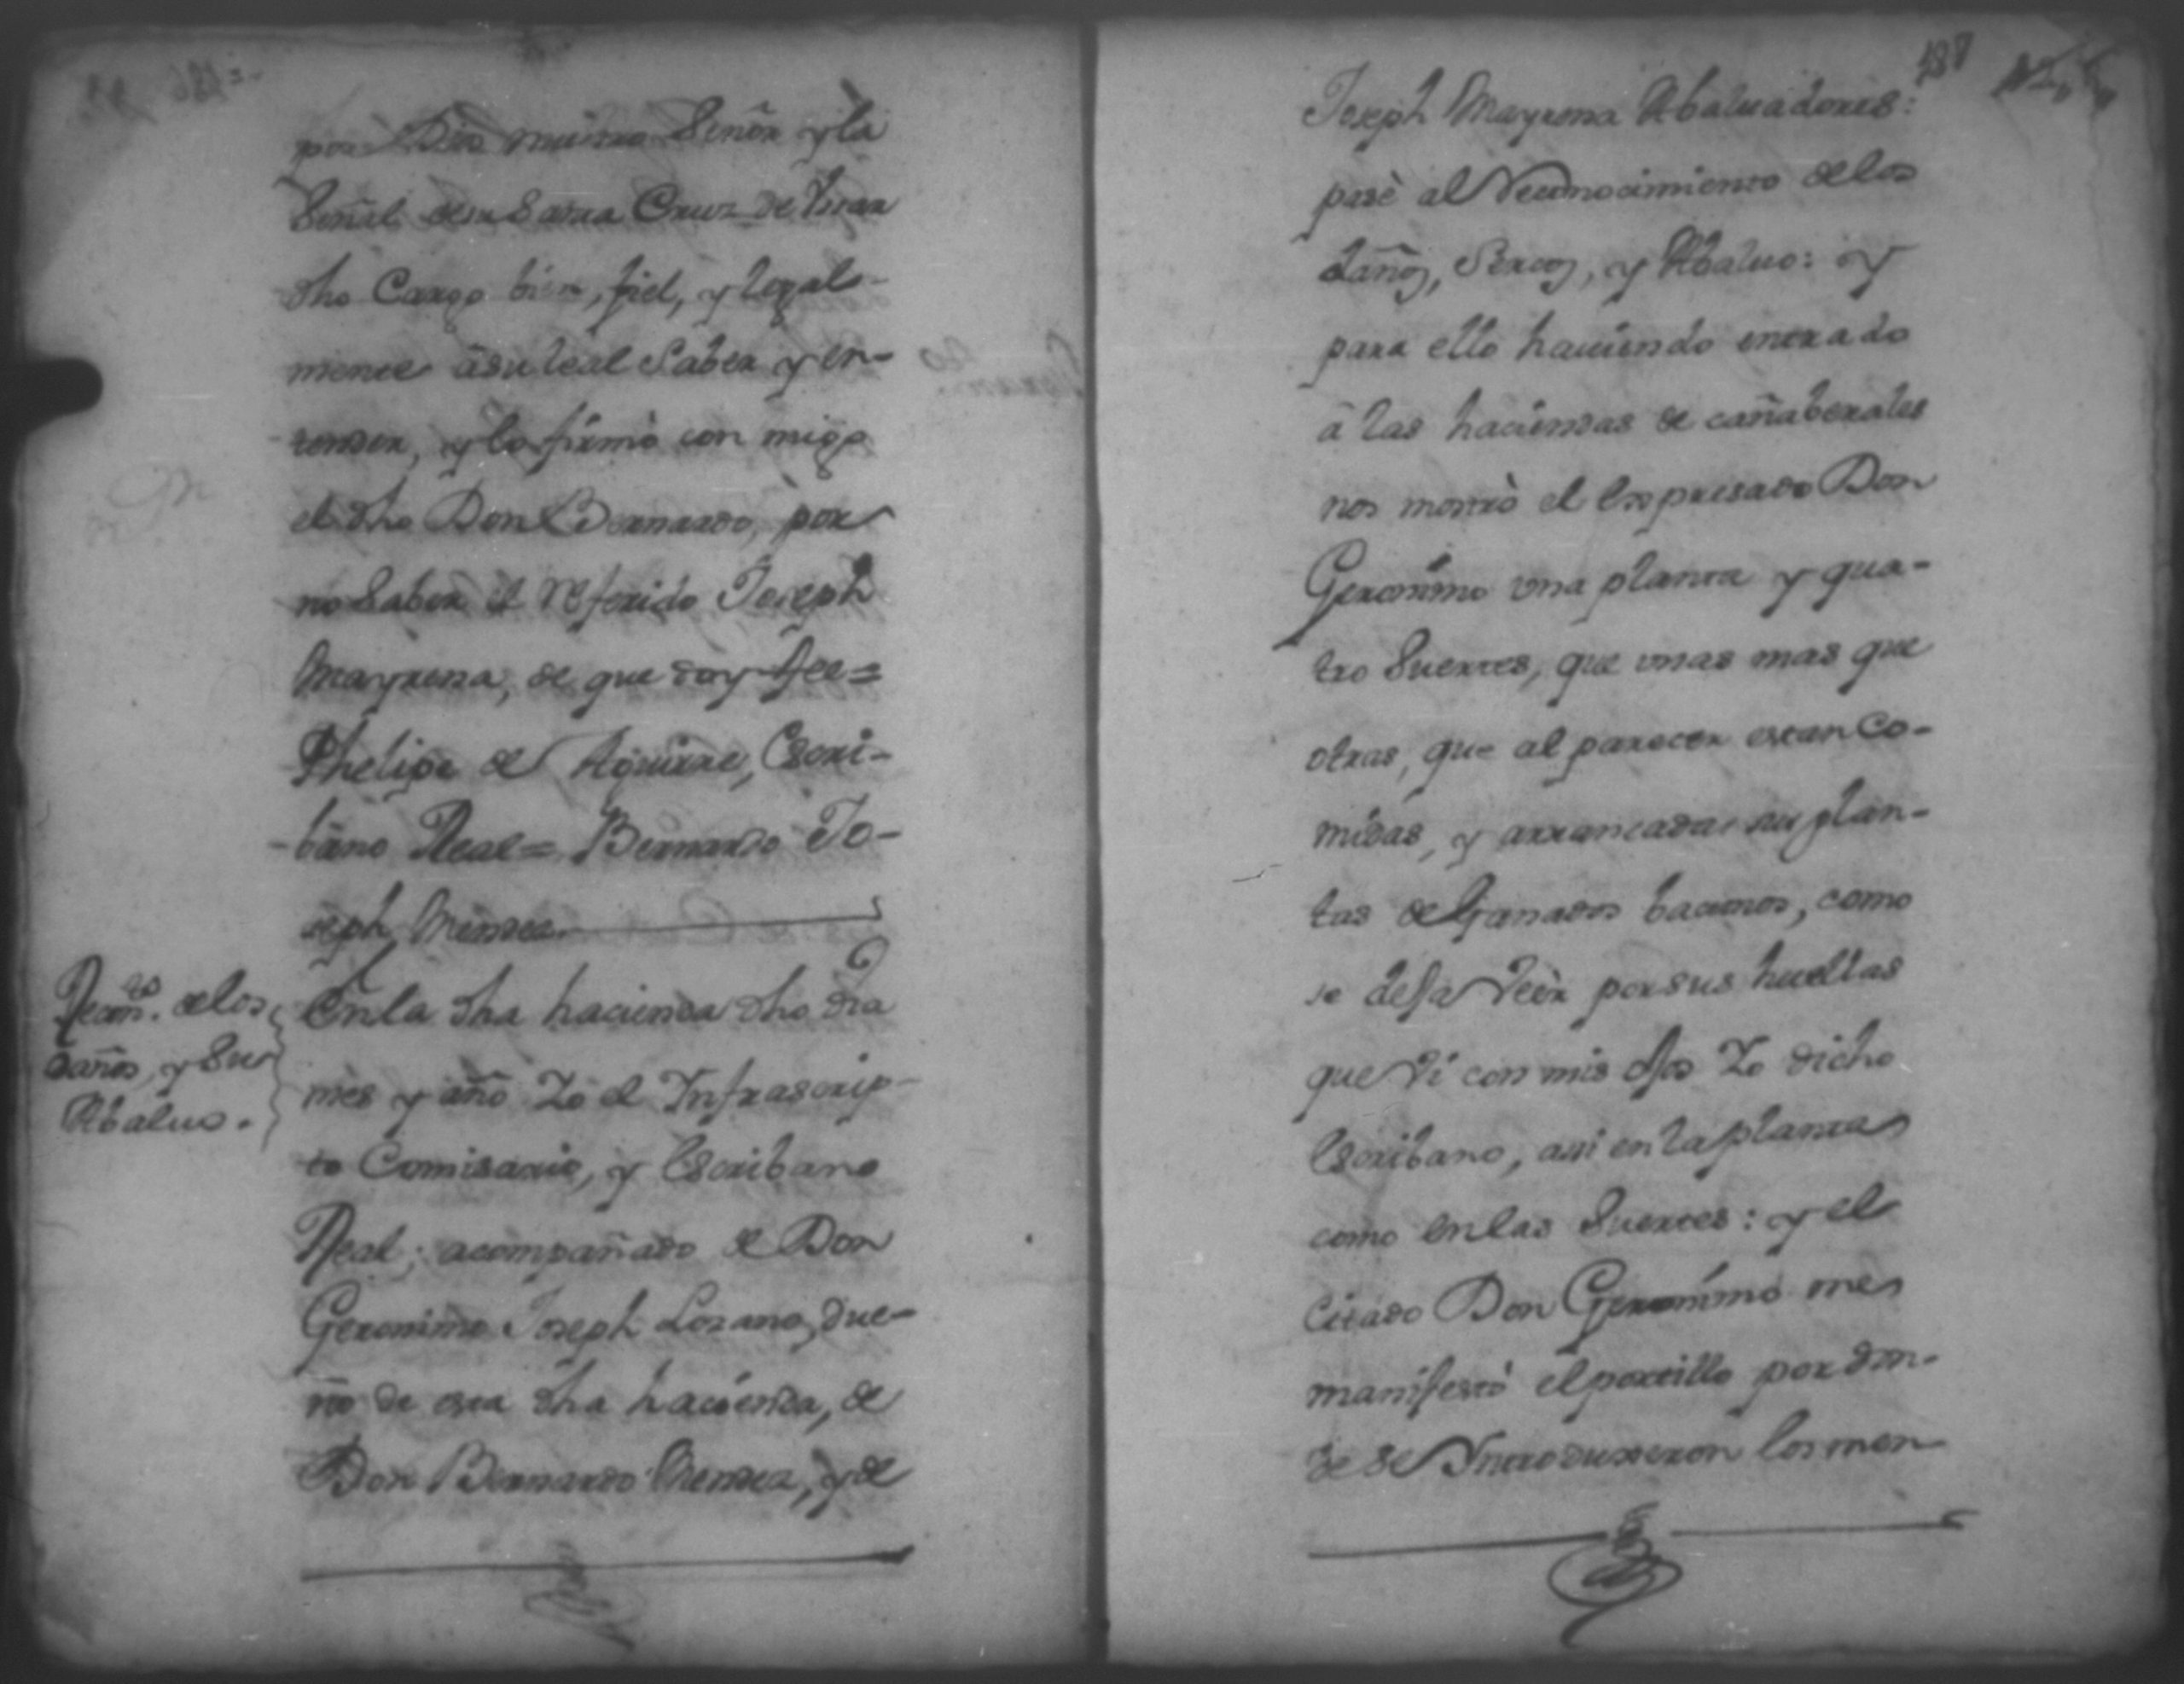 por Dios nuestro Señor y la
Señal de su Santa Cruz de Usar
dho Cargo bien, fiel, y legal-
mente â su leal Saber y en-
tender, y lo firmò con migo
el dho Don Bernardo, por
no Saber el Referido Joseph
Mayrena, de que doy fee=
Phelipe de Aguirre, Escri-
bano Real= Bernardo Jo-
seph Mendea.
Recom.to de los
daños, y Su
Abaluo.
En la dha hacienda dho dia
mes y año Yo el Infrascrip-
to Comisario, y Escribano
Real; acompañado de Don
Geronimo Joseph Lozano, due-
ño de esta dha hacienda, de
Don Bernardo Mendea, y de
187
Joseph Mayrena Abaluadores:
pasè al Reconocimiento de los
daños, Sercos, y Abaluo: y
para ello haciendo entrado
â las haciendas de cañaberales
nos mostrò el Expresado Don
Geronimo una planta y qua-
tro Suertes, que unas mas que
otras, que al parecer estan Co-
midas, y arrancadas sus plan-
tas de Ganados bacunos, como
se desa Veèr por sus huellas
que Vi con mis ojos Yo dicho
Escribano, assi en la planta
como en las Suertes: y el
Citado Don Geronimo me
manifestò el portillo por don-
de se Yntroduxeron los men